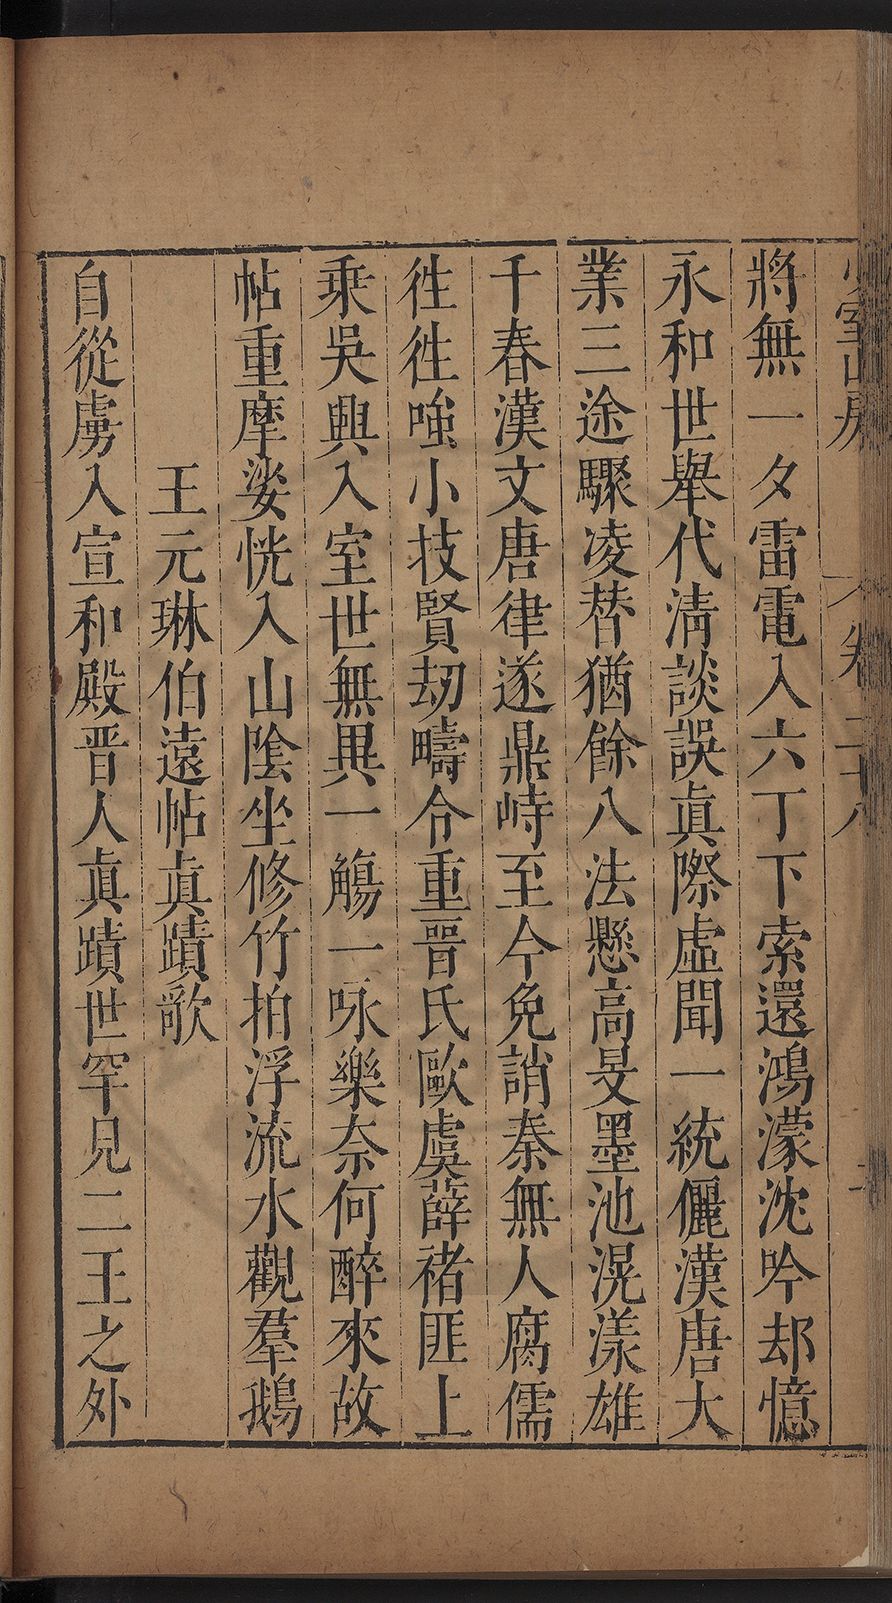 少室山房 卷二十八 二
將無一夕雷電入六丁下索還鴻濛沈吟却憶
永和世舉代清談誤真際虛聞一統儷漢唐大
業三途驟凌替猶餘八法懸高旻墨池滉漾雄
千春漢文唐律遂鼎峙至今免誚秦無人腐儒
徃徃嗤小技賢劫疇令重晉氏歐虞薛褚匪上
乘吳興入室世無異一觴一咏樂奈何醉來故
帖重摩娑恍入山陰坐修竹拍浮流水觀羣鵝
王元琳伯遠帖真蹟歌
自從虜入宣和殿晋人真蹟世罕見二王之外